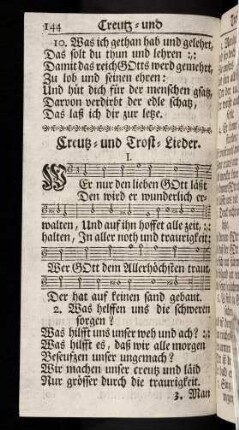 144 Creutz- und
10. Was ich gethan hab und gelehrt,
Das solt du thun und lehren :,:
Damit das reich GOtts werd gemehrt,
Zu lob und seinen ehren:
Und hüt dich für der menschen gsatz,
Darvon verdirbt der edle schatz,
Das laß ich dir zur letze.
Creutz- und Trost-Lieder.
I.
WEr nur den lieben GOtt läßt
Den wird er wunderlich er-
walten, Und auf ihn hoffet alle zeit, :,:
halten, In aller noth und traurigkeit:
Wer GOtt dem Allerhöchsten traut,
Der hat auf keinen sand gebaut.
2. Was helffen uns die schweren
sorgen?
Was hilfft uns unser weh und ach? :,:
Was hilfft es, daß wir alle morgen
Beseufzen unser ungemach?
Wir machen unser creutz und läid
Nur grösser durch die traurigkeit.
3. Man